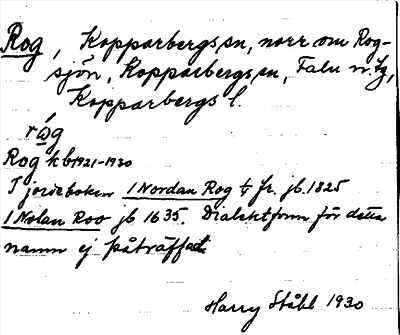 Rog, Kopparbergs sn, norr om Rog-
sjön, Kopparbergs sn, Falu n. tg,
Kopparbergs l.
råg
Rog kb 1921-1930
I jordeboken 1 Nordan Rog fr. jb. 1825
1 Nolan Roo jb 1635. Dialektform för detta
namn ej påträffat
Harry Ståhl 1930